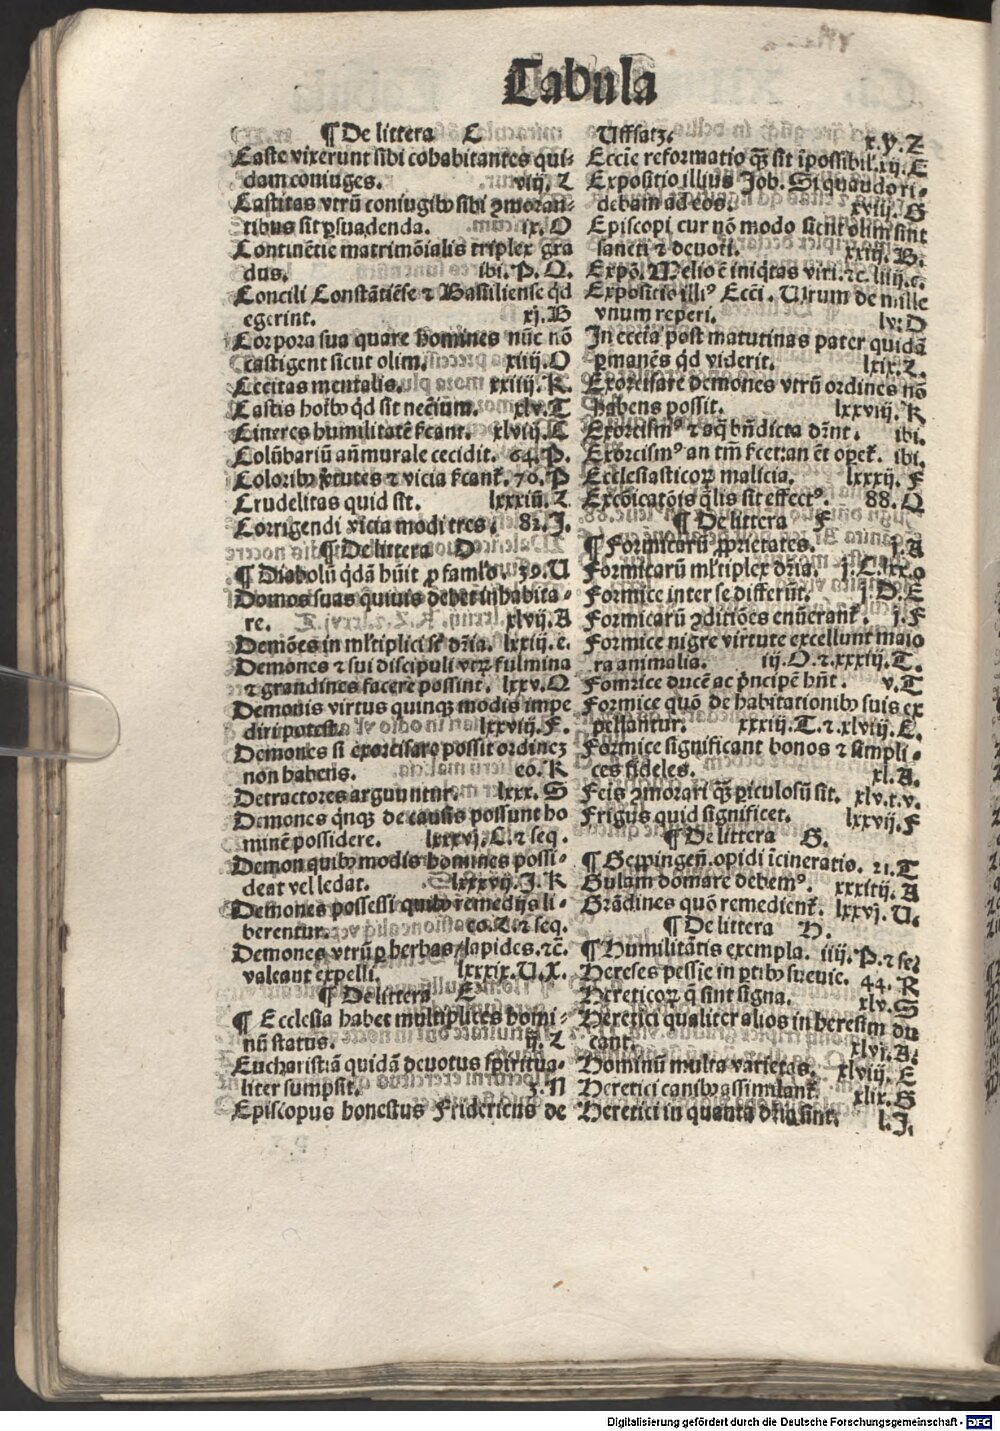 Tabula
¶ De littera C
Caste vixerunt sibi cohabitantes qui-
dam coniuges. viij. Z
Castitas vtrū coniugibꝰ sibi ꝯmoran-
tibus sit ꝑsuadenda. ix. O
Continētie matrimōialis triplex gra
dus. ibi. P. Q.
Concilij Constātiēse ⁊ Basiliense qd
egerint. xj. B
Corpora sua quare homines nūc nō
castigent sicut olim. xiiij. O
Cecitas mentalis. xxiiij. K.
Castis hoībꝰ qd sit neciūm. xlv. T
Cineres humilitatē ſcant. xlviij. T
Colūbariū aīmurale cecidit. 64. P.
Coloribꝰ v̄tutes ⁊ vicia ſcant. 70. P
Crudelitas quid sit. lxxxiiij. Z
Corrigendi vicia modi tres. 82. J.
¶ De littera D
¶ Diabolū qdā hūit ꝓ famlo. 39. U
Domos suas quiuis debet inhabita-
re. xlvij. A
Demōes in mltiplici st dria. lxxiij. e.
Demones ⁊ sui discipuli vtrꝝ fulmina
⁊ grandines facere possint. lxxv. Q
Demonis virtus quinqꝫ modis impe
diri potest. lxxviij. F.
Demones si exorcisare possit ordinez
non habens. eo. K
Detractores arguuntur. lxxx. S
Demones qnqꝫ de causis possunt ho
minē possidere. lxxxvj. C. ⁊ seq.
Demon quibꝰ modis homines possi-
deat vel ledat. lxxxvij. J. K
Demones possessi quibꝰ remedijs li-
berentur. eo. Z. ⁊ seq.
Demones vtrū ꝑ herbas/lapides. ⁊c.
valeant expelli. lxxxix. U. X.
¶ De littera E
¶ Ecclesia habet multiplices homi-
nū status. ij. Z
Eucharistiā quidā deuotus spiritua-
liter sumpsit. 3. N
Episcopus honestus Fridericus de
Uffsatz. x. y. Z
Eccīe reformatio qꝫ sit īpossibil. xij. E
Expositio illius Job. Si quando ri-
debam ad eos. xviij. G
Episcopi cur nō modo sicut olim sint
sancti ⁊ deuoti. xxiij. B.
Expō. Melio ē iniqtas viri. ⁊c. liiij. c.
Expositio illiꝰ Ecci. Uirum de mille
vnum reperi. lv: D
In eccīa post matutinas pater quidā
ꝑmanēs qd viderit. lxix. Z.
Exorcisare demones vtrū ordines nō
habens possit. lxxviij. K
Exorcismꝰ ⁊ aq̄ bn̄dicta dr̄nt. ibi.
Exorcismꝰ an tm̄ ſcet: an ēt opet. ibi.
Ecclesiasticoꝝ malicia. lxxxij. F
Excōicatōis qlis sit effectꝰ. 88. Q
¶ De littera F
¶ Formicarū ꝓprietates. j. A
Formicarū mltiplex dr̄ia. j. C. lxx. o
Formice inter se differūt. j. D. E
Formicarū ꝯditiōes enūcrant. j. F
Formice nigre virtute excellunt maio
ra animalia. iij. O. ⁊. xxxiij. T.
Fomrice ducē ac pncipē hn̄t. v. T
Formice quō de habitationibꝰ suis ex
pellantur. xxxiij. T. ⁊. xlviij. C.
Formice significant bonos ⁊ simpli-
ces fideles. xl. A.
Feis ꝯmorari qꝫ ꝑiculosū sit. xlv. t. v.
Frigus quid significet. lxxvij. F
¶ De littera G.
¶ Geppingen̄. opidi īcineratis. 21. T
Gulam domare debemꝰ. xxxiiij. A
Grādines quō remedient. lxxvj. U.
¶ De littera H.
¶ Humilitātis exempla. iiij. P. ⁊ se
Hereses pessīe in ptibꝰ sueuie. 44. R
Hereticoꝝ q̄ sint signa. xlv. S
Heretici qualiter alios in heresim du
cant. xlvj. A.
Hominū multa varietas. xlviij. E
Heretici canibꝰ assimilant. xlix. G
Heretici in quanta dr̄ia sint. l. J.
Digitalisierung gefördert durch die Deutsche Forschungsgemeinschaft - DFG